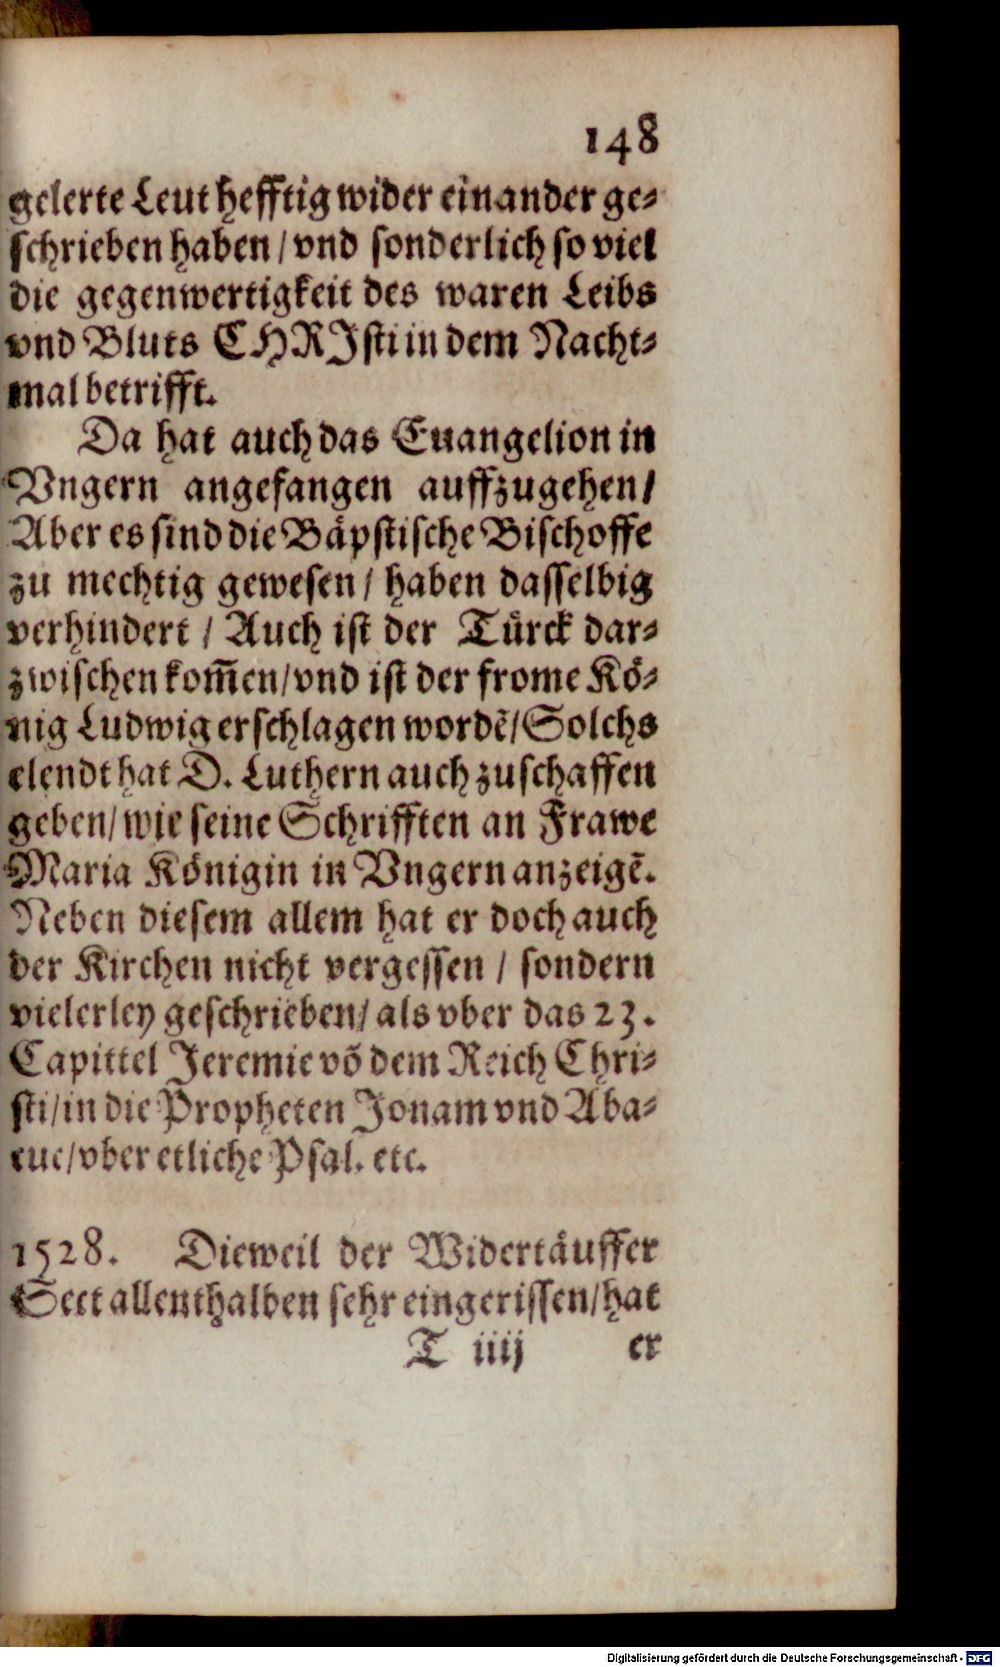 148
gelerte Leut hefftig wider einander ge-
schrieben haben / vnd sonderlich so viel
die gegenwertigkeit des waren Leibs
vnd Bluts CHRJsti in dem Nacht-
mal betrifft.
Da hat auch das Euangelion in
Vngern angefangen auffzugehen /
Aber es sind die Bäpstische Bischoffe
zu mechtig gewesen / haben dasselbig
verhindert / Auch ist der Türck dar-
zwischen kom̃en / vnd ist der frome Kö-
nig Ludwig erschlagen wordẽ / Solchs
elendt hat D. Luthern auch zuschaffen
geben / wie seine Schrifften an Frawe
Maria Königin in Vngern anzeigẽ.
Neben diesem allem hat er doch auch
der Kirchen nicht vergessen / sondern
vielerley geschrieben / als vber das 23.
Capittel Jeremie võ dem Reich Chri-
sti / in die Propheten Jonam vnd Aba-
cuc / vber etliche Psal. etc.
1528. Dieweil der Widertäuffer
Sect allenthalben sehr eingerissen / hat
T iiij er
Digitalisierung gefördert durch die Deutsche Forschungsgemeinschaft - DFG